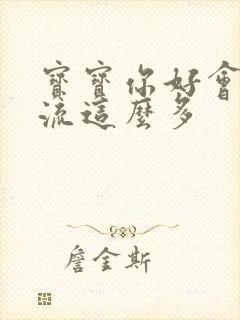 寶寶你好會
流這麼多
詹金斯